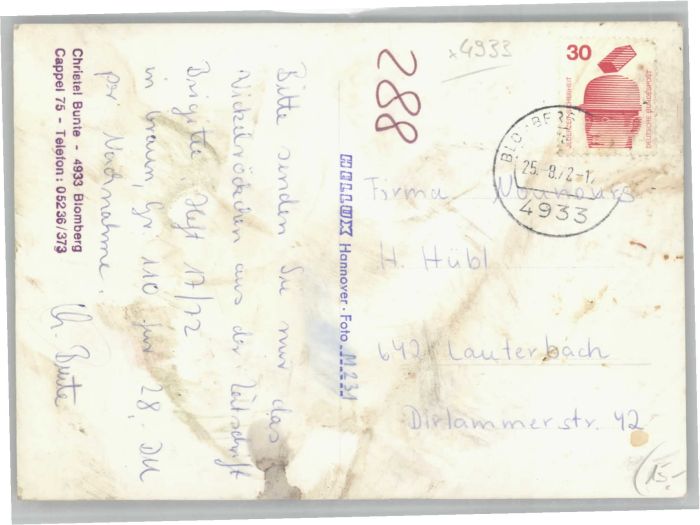 Christel Bunte - 4933 Blomberg
Cappel 75 - Telefon: 05236/373
Bitte senden Sie mir das
Wickelröckchen aus der Zeitschrift
Brigitte, Heft 17/72
in braun, Gr. 110 für 28. DM
per Nachnahme.
Ch. Bunte
288
x4933
HELLOX Hannover · Foto M 231
30
JEDERZEIT SICHERHEIT
DEUTSCHE BUNDESPOST
BLOMBERG
25.-8.72-1
4933
Firma
H. Hübl
642 Lauterbach
Dirlammerstr. 42
15.-